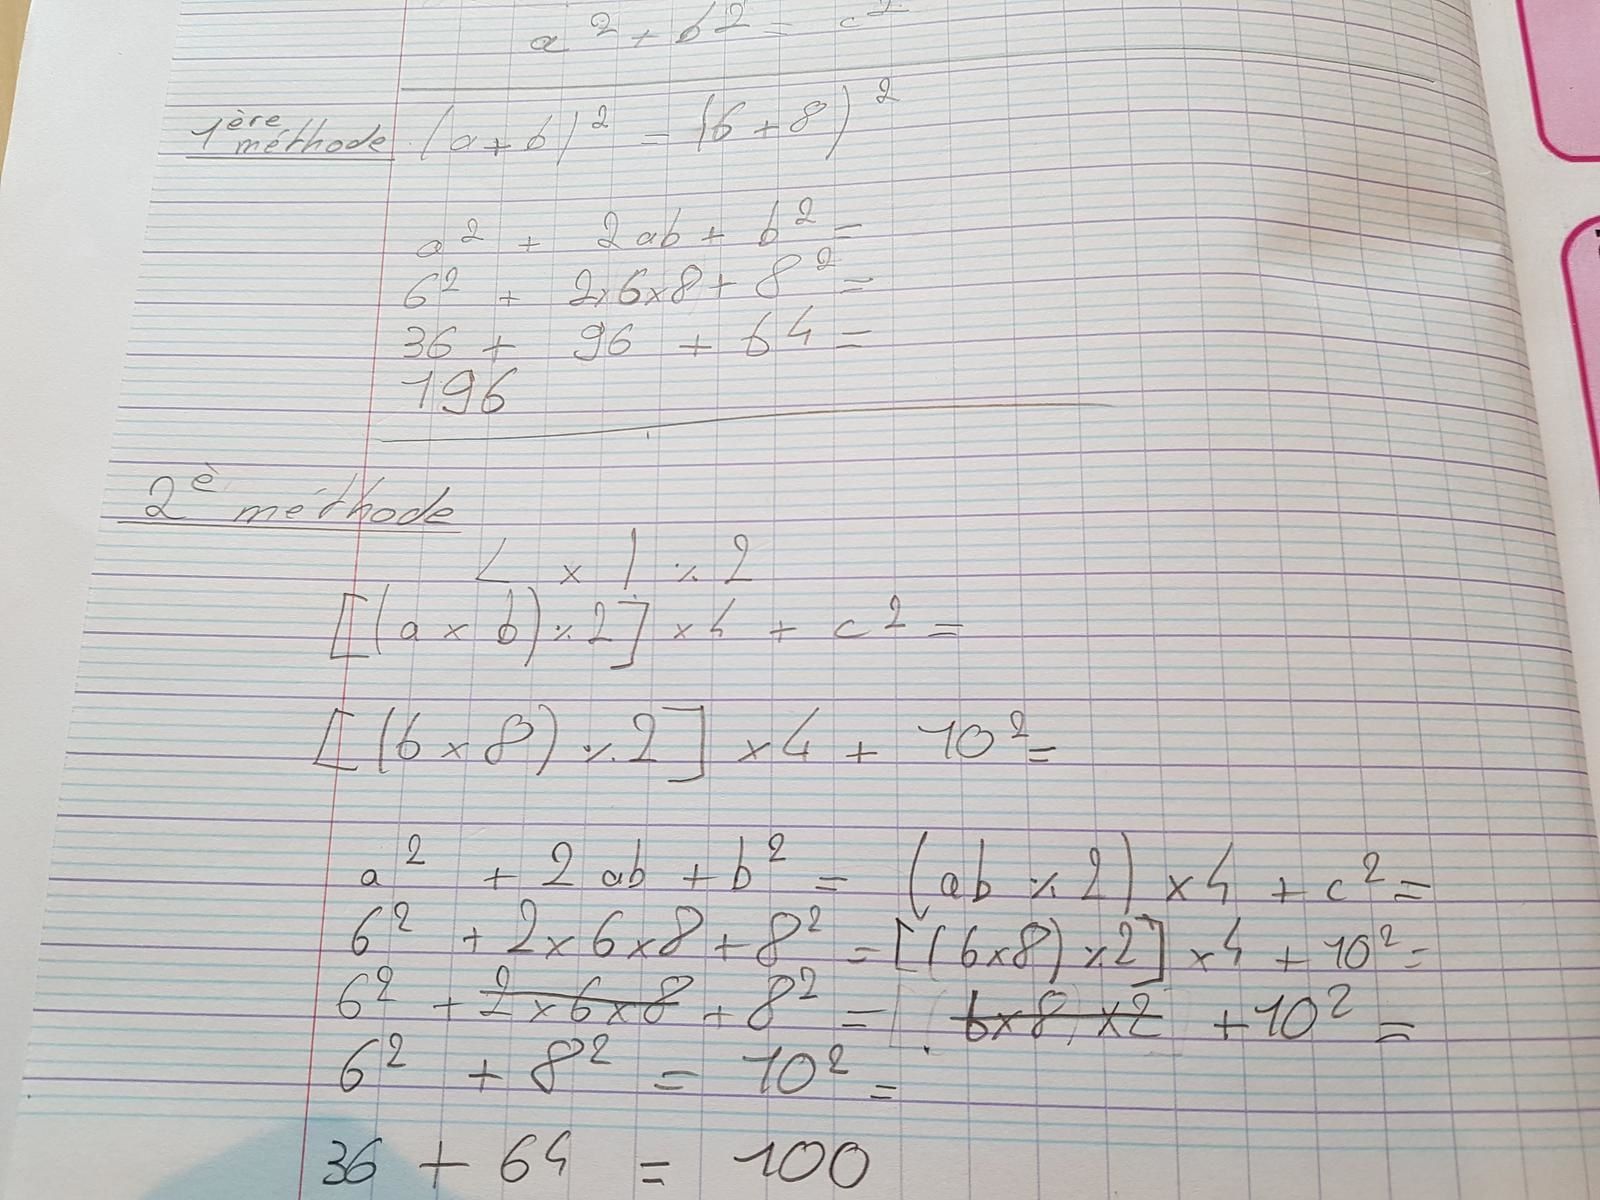 a² + b² = c²
1ère méthode (a + b)² = (6 + 8)²
a² + 2ab + b² =
6² + 2x6x8 + 8² =
36 + 96 + 64 =
196
2è méthode
L x l ÷ 2
[(a x b) ÷ 2] x 4 + c² =
[(6 x 8) ÷ 2] x 4 + 10² =
a² + 2 ab + b² = (ab ÷ 2) x 4 + c² =
6² + 2 x 6 x 8 + 8² = [(6x8) ÷ 2] x 4 + 10² =
6² + 2 x 6 x 8 + 8² = 6x8 x2 + 10² =
6² + 8² = 10² =
36 + 64 = 100